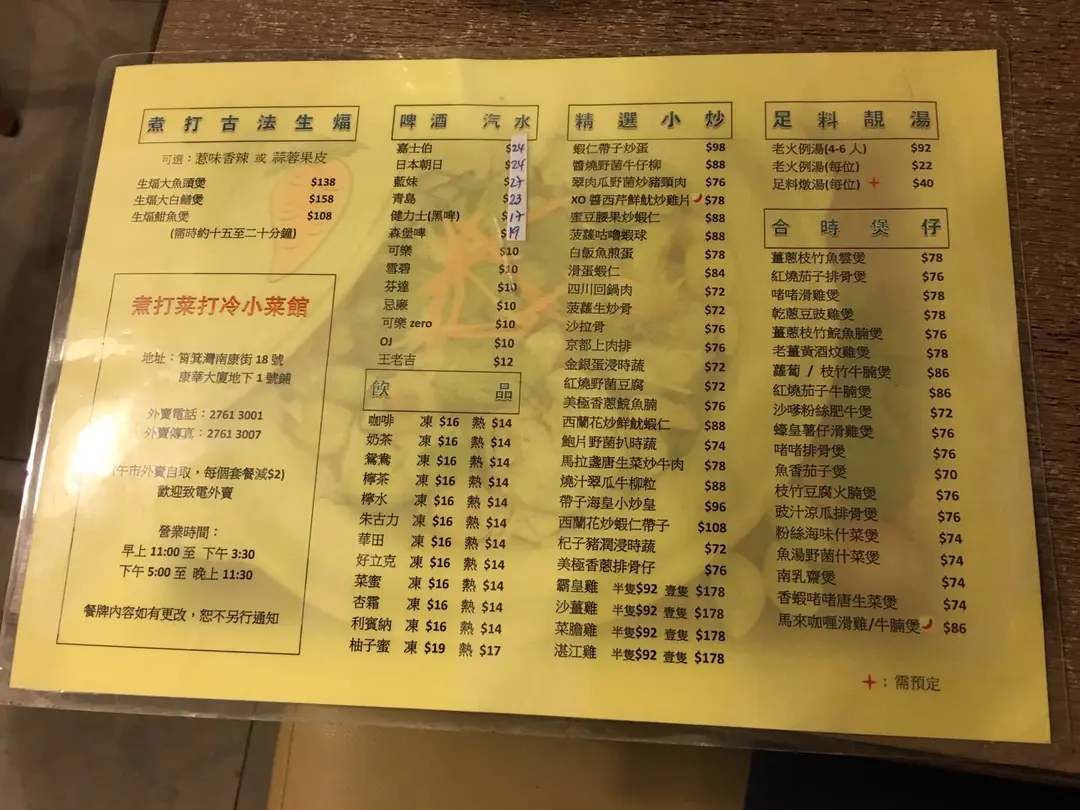 煮打古法生煏
可選：惹味香辣 或 蒜蓉果皮
生煏大魚頭煲 $138
生煏大白鱔煲 $158
生煏鮒魚煲 $108
(需時約十五至二十分鐘)
煮打菜打冷小菜館
地址：筲箕灣南康街 18 號
康華大廈地下 1 號鋪
外賣電話：2761 3001
外賣傳真：2761 3007
(午市外賣自取，每個套餐減$2)
歡迎致電外賣
營業時間：
早上 11:00 至 下午 3:30
下午 5:00 至 晚上 11:30
餐牌內容如有更改，恕不另行通知
啤酒 汽水
嘉士伯 $24
日本朝日 $24
藍妹 $27
青島 $23
健力士(黑啤) $17
森堡啤 $19
可樂 $10
雪碧 $10
芬達 $10
忌廉 $10
可樂 zero $10
OJ $10
王老吉 $12
飲品
咖啡 凍 $16 熱 $14
奶茶 凍 $16 熱 $14
鴛鴦 凍 $16 熱 $14
檸茶 凍 $16 熱 $14
檸水 凍 $16 熱 $14
朱古力 凍 $16 熱 $14
華田 凍 $16 熱 $14
好立克 凍 $16 熱 $14
菜蜜 凍 $16 熱 $14
杏霜 凍 $16 熱 $14
利賓納 凍 $16 熱 $14
柚子蜜 凍 $19 熱 $17
精選小炒
蝦仁帶子炒蛋 $98
醬燒野菌牛仔柳 $88
翠肉瓜野菌炒豬頸肉 $76
XO 醬西芹鮮魷炒雞片 $78
蜜豆腰果炒蝦仁 $88
菠蘿咕嚕蝦球 $88
白飯魚煎蛋 $78
滑蛋蝦仁 $84
四川回鍋肉 $72
菠蘿生炒骨 $72
沙拉骨 $76
京都上肉排 $76
金銀蛋浸時蔬 $72
紅燒野菌豆腐 $72
美極香蔥鯇魚腩 $76
西蘭花炒鮮魷蝦仁 $88
鮑片野菌扒時蔬 $74
馬拉盞唐生菜炒牛肉 $78
燒汁翠瓜牛柳粒 $88
帶子海皇小炒皇 $96
西蘭花炒蝦仁帶子 $108
杞子豬潤浸時蔬 $72
美極香蔥排骨仔 $76
霸皇雞 半隻$92 壹隻 $178
沙薑雞 半隻$92 壹隻 $178
菜膽雞 半隻$92 壹隻 $178
湛江雞 半隻$92 壹隻 $178
足料靚湯
老火例湯(4-6 人) $92
老火例湯(每位) $22
足料燉湯(每位) $40
合時煲仔
薑蔥枝竹魚雲煲 $78
紅燒茄子排骨煲 $76
啫啫滑雞煲 $78
乾蔥豆豉雞煲 $78
薑蔥枝竹鯇魚腩煲 $76
老薑黃酒炆雞煲 $78
蘿蔔 / 枝竹牛腩煲 $86
紅燒茄子牛腩煲 $86
沙嗲粉絲肥牛煲 $72
蠔皇薯仔滑雞煲 $76
啫啫排骨煲 $76
魚香茄子煲 $70
枝竹豆腐火腩煲 $76
豉汁涼瓜排骨煲 $76
粉絲海味什菜煲 $74
魚湯野菌什菜煲 $74
南乳齋煲 $74
香蝦啫啫唐生菜煲 $74
馬來咖喱滑雞/牛腩煲 $86
：需預定